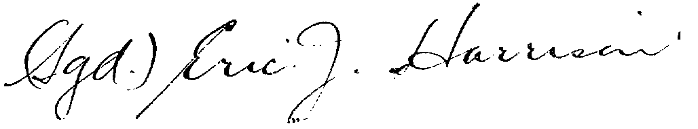 (Sgd.) Eric J. Harrison